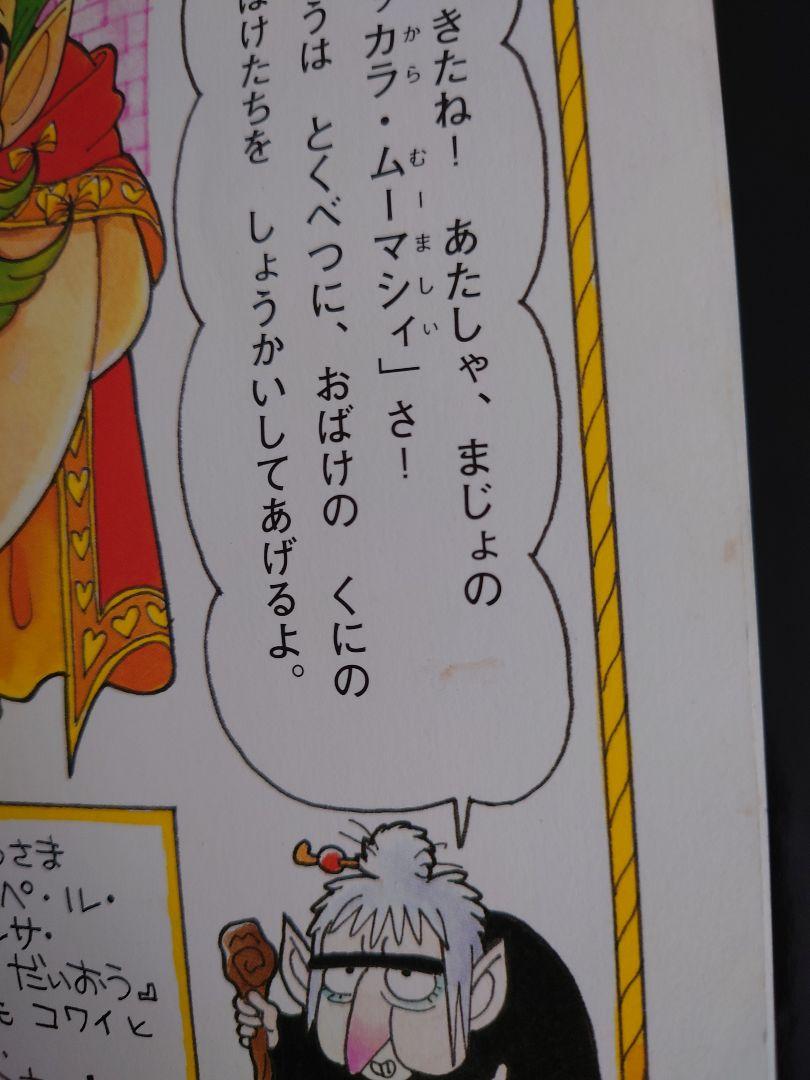 きたね！ あたしゃ、まじょの
カラ・ムーマシィ」さ！
から むーましい
うは とくべつに、おばけの くにの
ばけたちを しょうかいしてあげるよ。
さま
ペ・ル・
サ・
だいおう』
コワイと